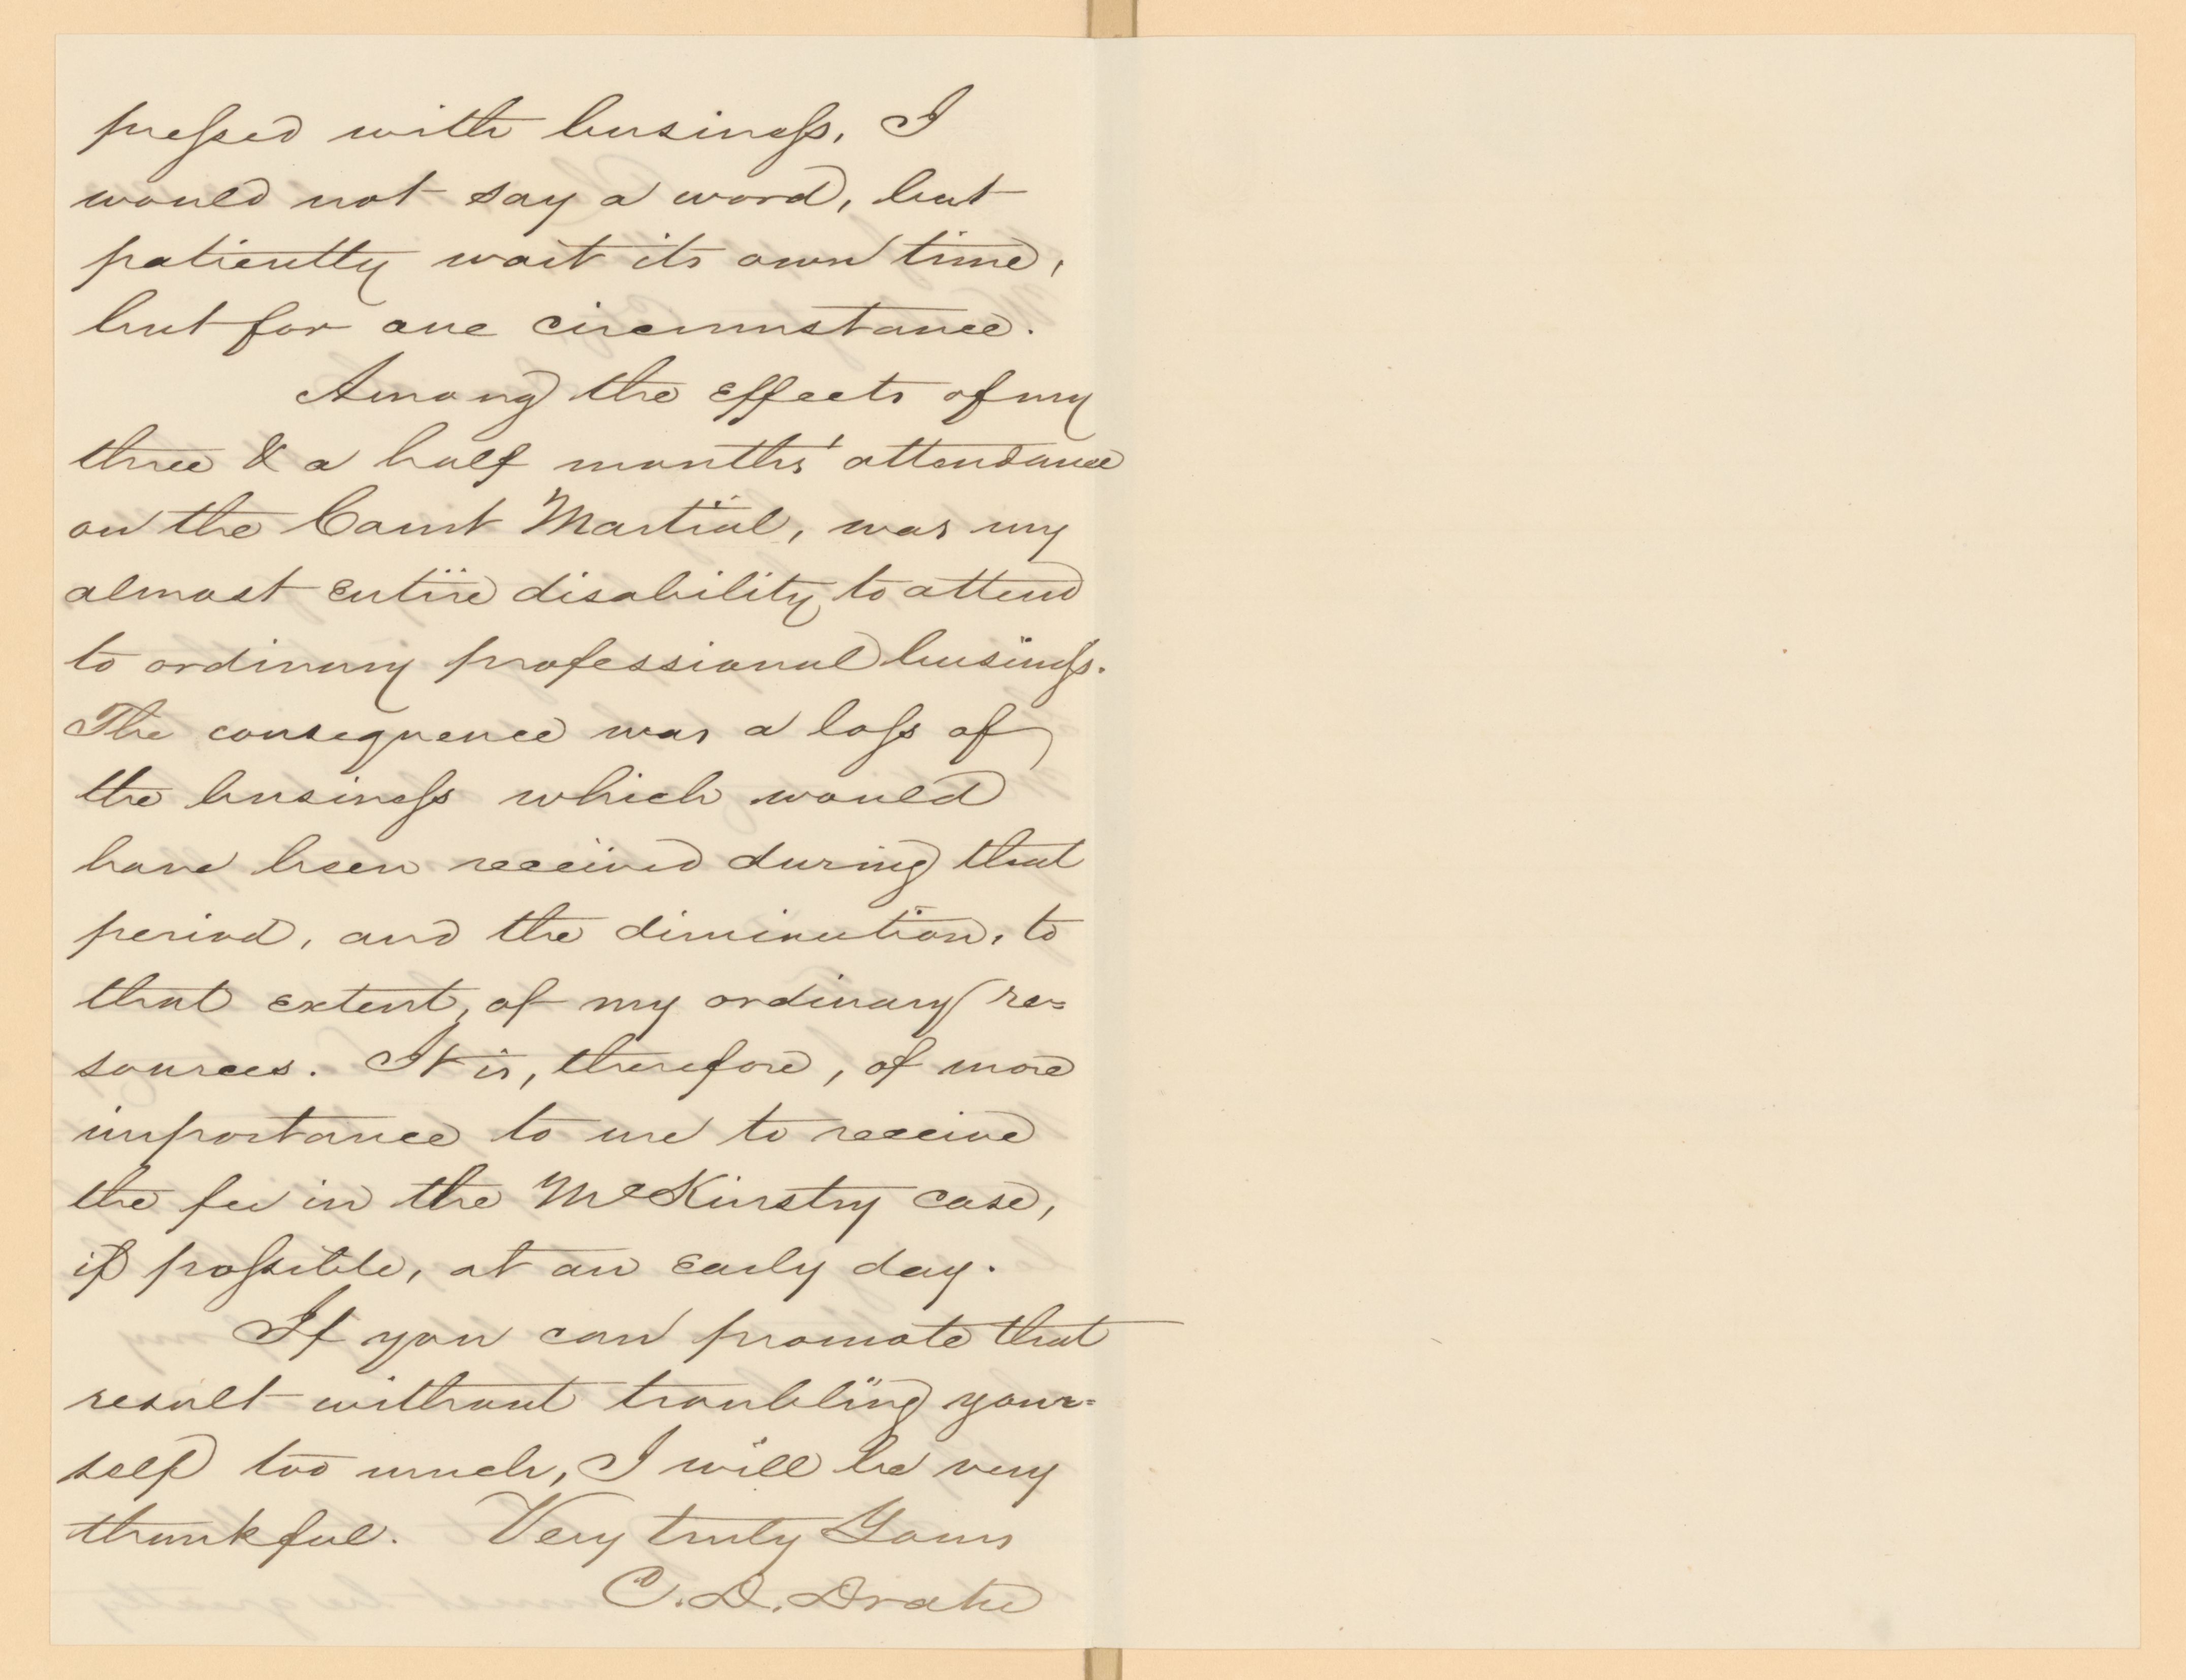 pressed with business, I
would not say a word, but
patiently wait its own time,
but for one circumstance.
Among the effects of my
three & a half months' attendance
on the Court Martial, was my
almost entire disability to attend
to ordinary professional business.
The consequence was a loss of
the business which would
have been received during that
period, and the diminution, to
that extent, of my ordinary re=
sources. It is, therefore, of more
importance to me to receive
the fee in the McKinstry case,
if possible, at an early day.
If you can promote that
result without troubling your=
self too much, I will be very
thankful. Very truly Yours
C. D. Drake